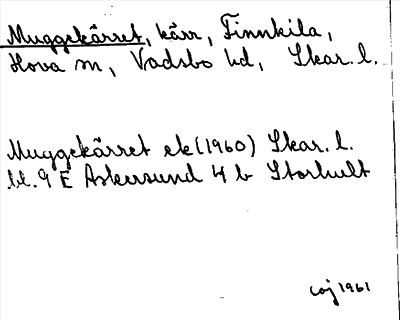 Muggekärret, kärr, Finnkila,
Hova sn, Vadsbo hd, Skar. l.
Muggekärret ek (1960) Skar. l.
bl. 9 E Askersund 4 b Storhult
caj 1961